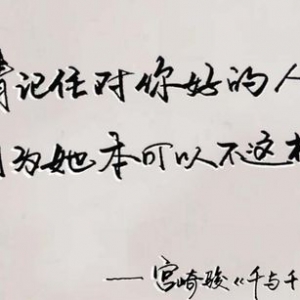 请记住对你好的人
因为她本可以不这样
——宫崎骏《千与千